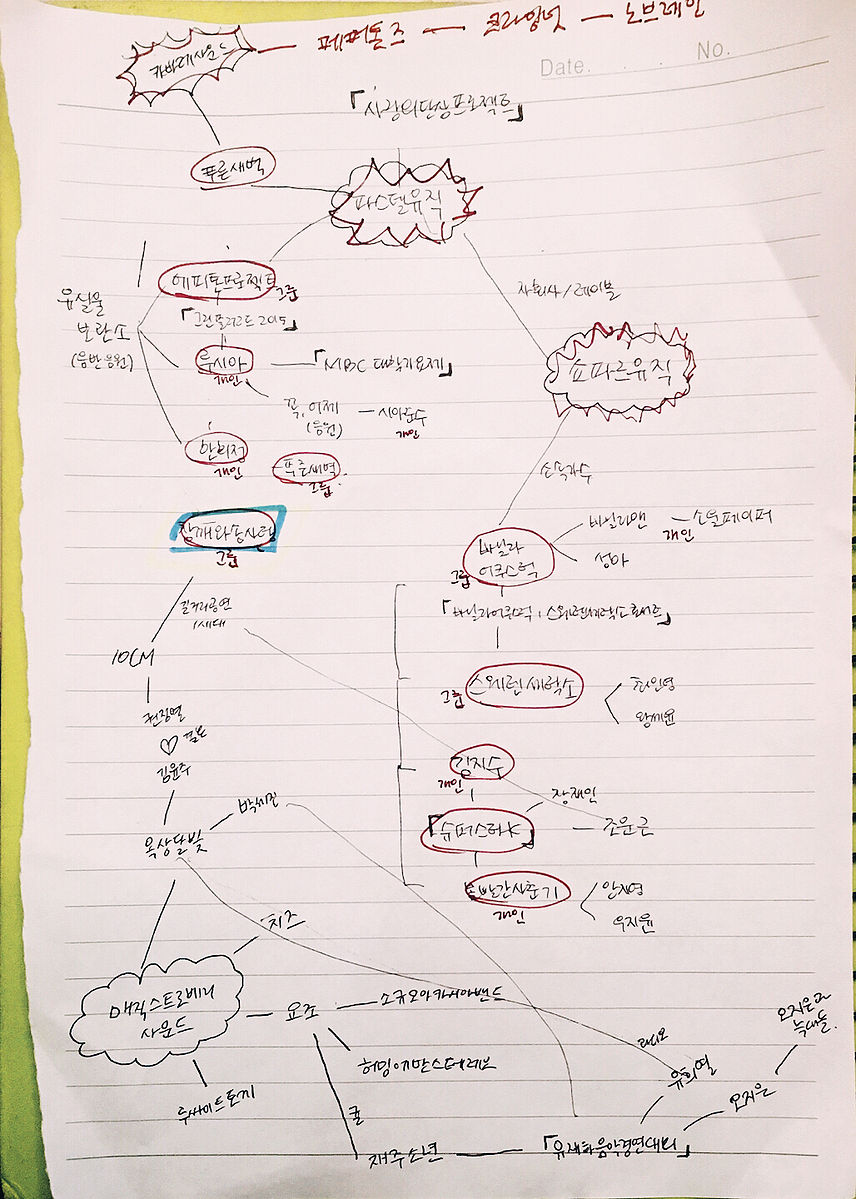 카바레사운드 — 페퍼톤즈 — 크라잉넛 — 노브레인
Date. No.
「사랑의단상프로젝트」
푸른새벽
파스텔뮤직
에피톤프로젝트
그룹
자회사/레이블
유실물
보관소
(음반응원)
「그린플러그드 2015」
루시아
개인
「MBC 대학가요제」
쇼파르뮤직
꼭, 어제
(응원)
시아준수
개인
소속가수
한희정
개인
푸른새벽
그룹
참깨와솜사탕
그룹
바닐라
어쿠스틱
그룹
바닐라맨
개인
소울페이퍼
성아
길거리공연
1세대
「바닐라어쿠스틱, 스웨덴세탁소 콘서트」
10CM
그룹
스웨덴세탁소
최인영
왕세윤
권정열
♡ 결혼
김윤주
김지수
개인
박세진
장재인
옥상달빛
「슈퍼스타K」
조문근
볼빨간사춘기
개인
안지영
우지윤
치즈
매직스트로베리
사운드
요조
소규모아카시아밴드
오지은과
늑대들
라디오
허밍어반스테레오
유희열
루싸이트토끼
오지은
귤
재주소년
「유재하음악경연대회」